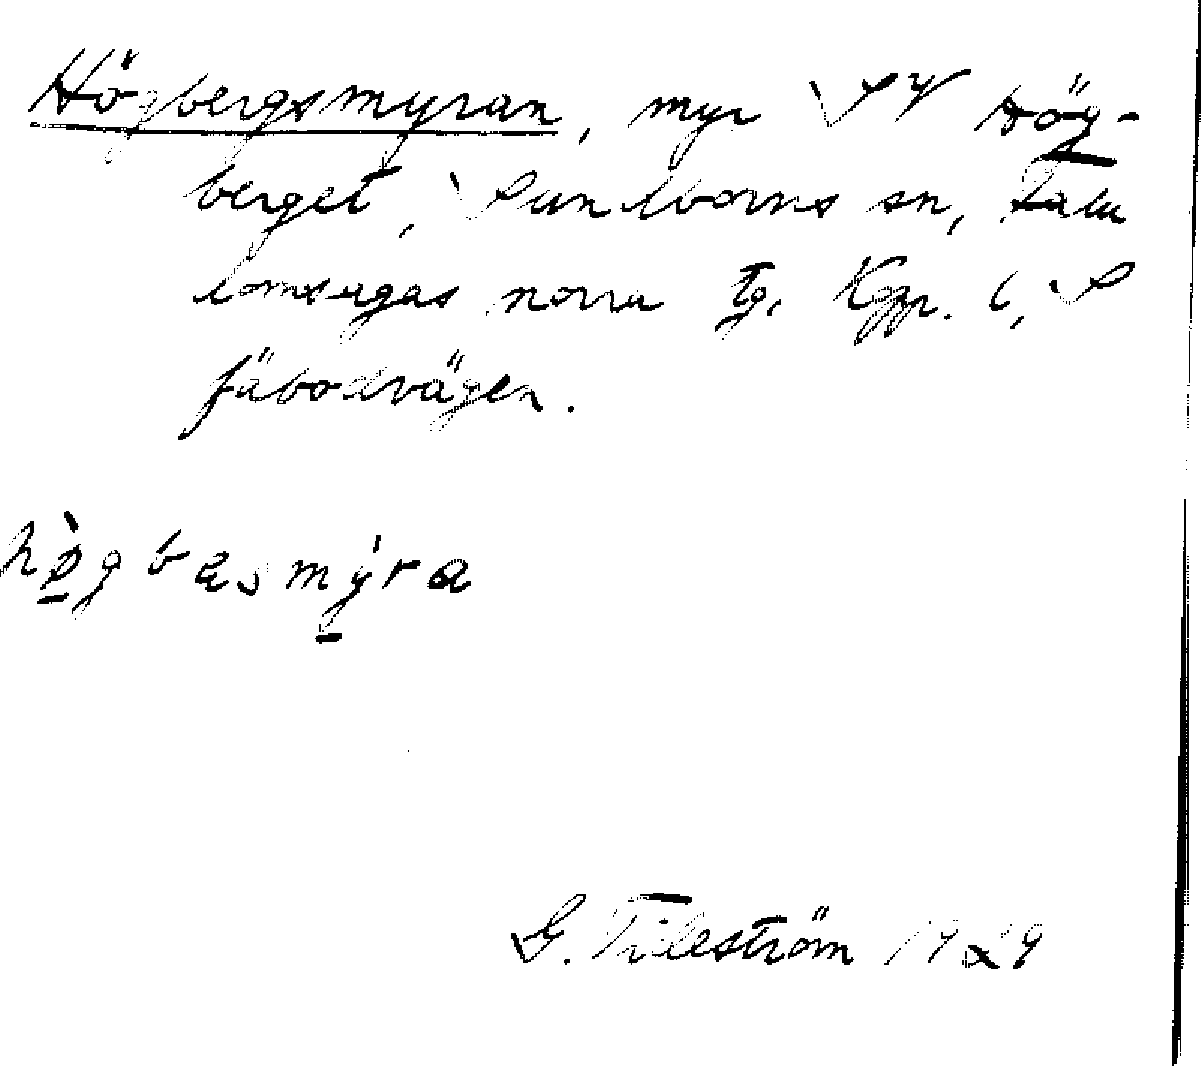 Högbergsmyran, myr SV Hög-
berget, Sundborns sn, Falu
domsagas norra tg. Kopp. l, S
fäbodvägen.
hø̀gbasmýra
G. Tilleström 1929